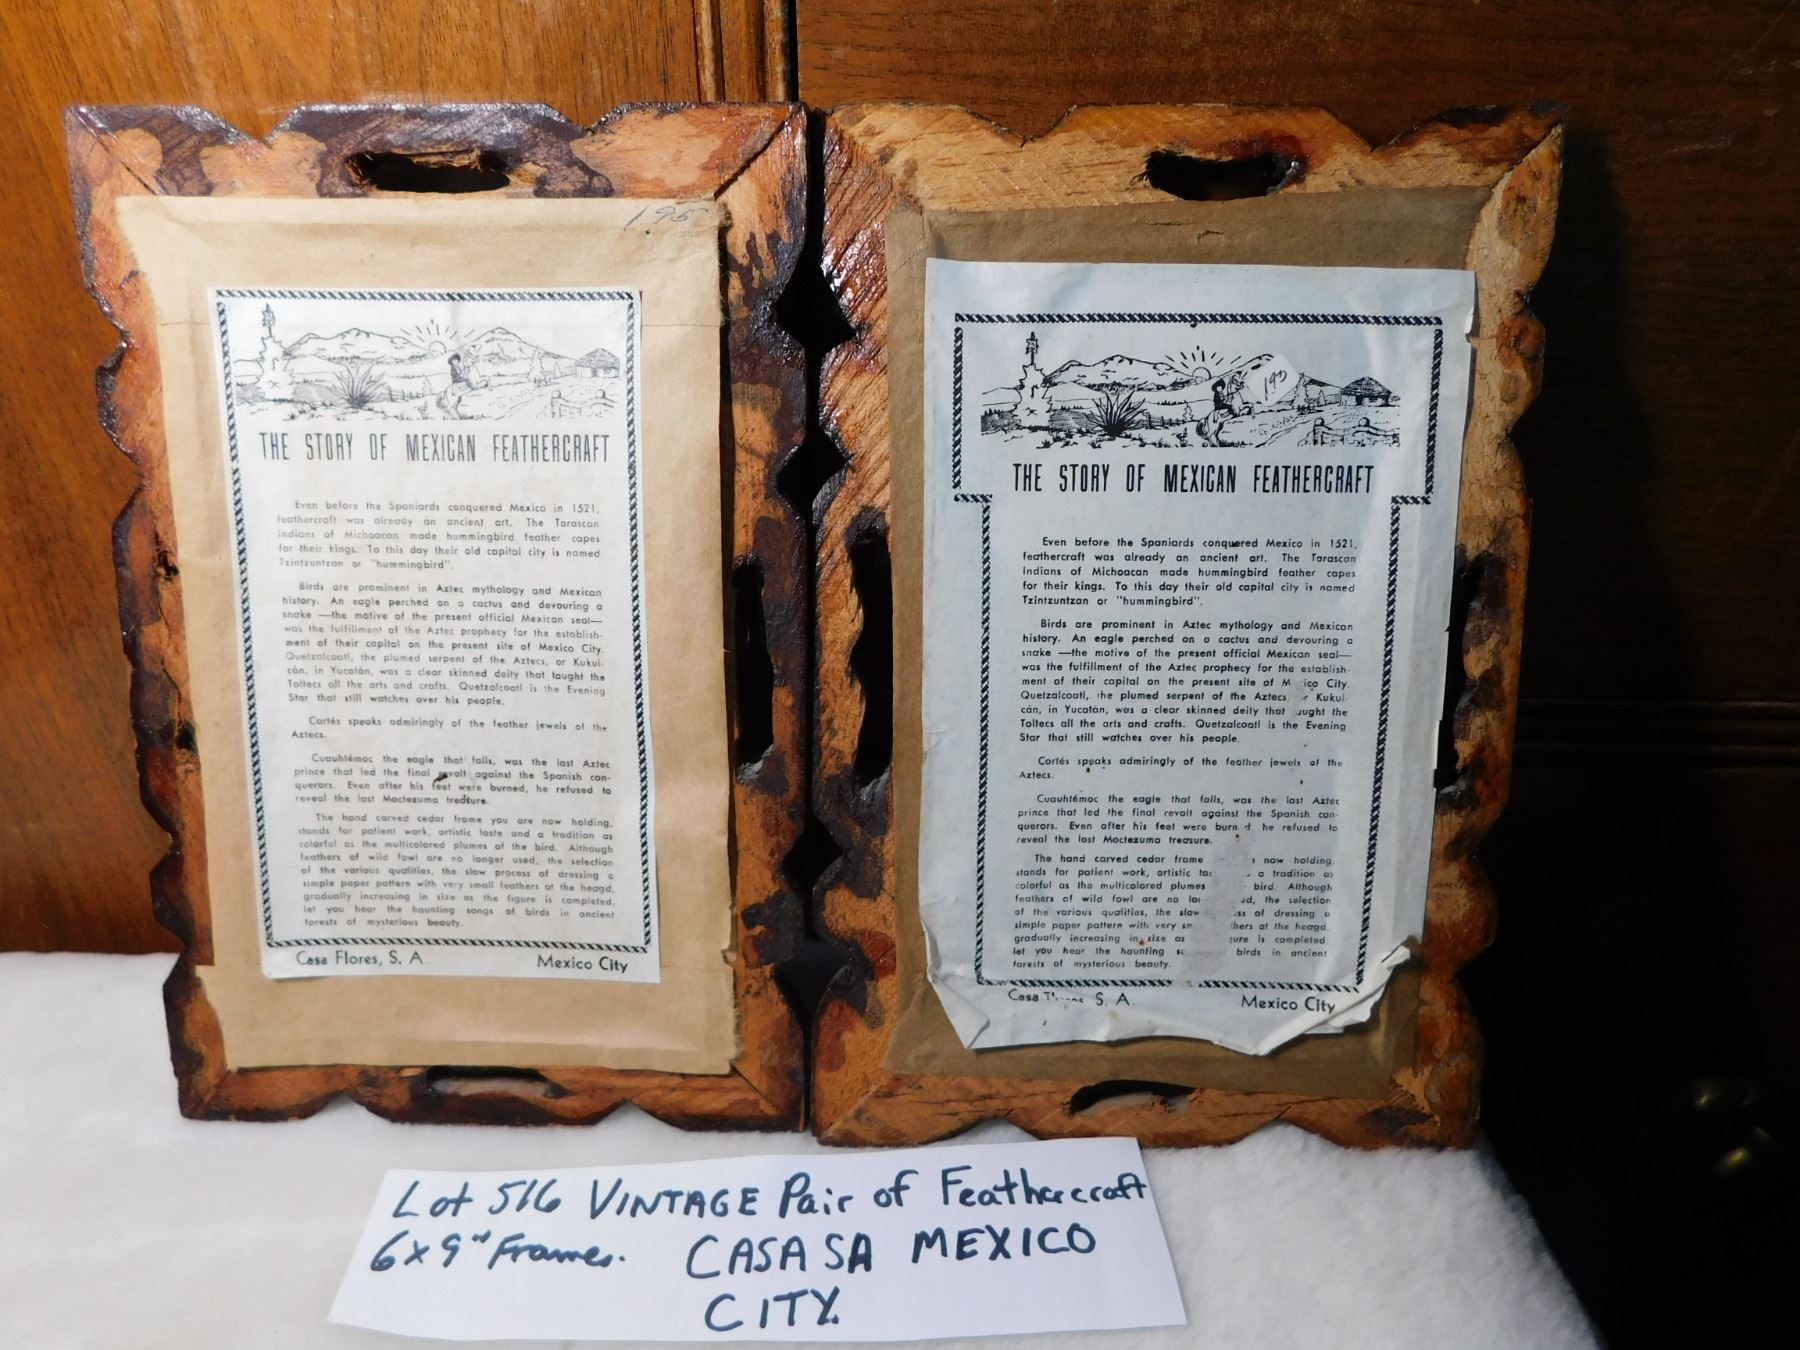 195
THE STORY OF MEXICAN FEATHERCRAFT
Even before the Spaniards conquered Mexico in 1521,
feathercraft was already an ancient art. The Tarascan
Indians of Michoacan made hummingbird feather capes
for their kings. To this day their old capital city is named
Tzintzuntzan or "hummingbird".
Birds are prominent in Aztec mythology and Mexican
history. An eagle perched on a cactus and devouring a
snake —the motive of the present official Mexican seal—
was the fulfillment of the Aztec prophecy for the establish-
ment of their capital on the present site of Mexico City.
Quetzalcoatl, the plumed serpent of the Aztecs, or Kukul-
cán, in Yucatán, was a clear skinned deity that taught the
Toltecs all the arts and crafts. Quetzalcoatl is the Evening
Star that still watches over his people.
Cortés speaks admiringly of the feather jewels of the
Aztecs.
Cuauhtémoc the eagle that falls, was the last Aztec
prince that led the final revolt against the Spanish con-
querors. Even after his feet were burned, he refused to
reveal the lost Moctezuma treasure.
The hand carved cedar frame you are now holding,
stands for patient work, artistic taste and a tradition as
colorful as the multicolored plumes of the bird. Although
feathers of wild fowl are no longer used, the selection
of the various qualities, the slow process of dressing a
simple paper pattern with very small feathers at the heagd,
gradually increasing in size as the figure is completed,
let you hear the haunting songs of birds in ancient
forests of mysterious beauty.
Casa Flores, S. A. Mexico City
195
THE STORY OF MEXICAN FEATHERCRAFT
Even before the Spaniards conquered Mexico in 1521,
feathercraft was already an ancient art. The Tarascan
Indians of Michoacan made hummingbird feather capes
for their kings. To this day their old capital city is named
Tzintzuntzan or "hummingbird".
Birds are prominent in Aztec mythology and Mexican
history. An eagle perched on a cactus and devouring a
snake —the motive of the present official Mexican seal—
was the fulfillment of the Aztec prophecy for the establish-
ment of their capital on the present site of City.
Quetzalcoatl, the plumed serpent of the Aztecs, Kukul-
cán, in Yucatán, was a clear skinned deity that taught the
Toltecs all the arts and crafts. Quetzalcoatl is the Evening
Star that still watches over his people.
Cortés speaks admiringly of the feather jewels of the
Aztecs.
Cuauhtémoc the eagle that falls, was the last Aztec
prince that led the final revolt against the Spanish con-
querors. Even after his feet were he refused to
reveal the lost Moctezuma treasure.
The hand carved cedar frame now holding,
stands for patient work, artistic a tradition as
colorful as the multicolored plumes bird. Although
feathers of wild fowl are no the selection
of the various qualities, the slow of dressing a
simple paper pattern with very at the heagd,
gradually increasing in size as is completed,
let you hear the haunting birds in ancient
forests of mysterious beauty.
Casa S. A. Mexico City
Lot 516 VINTAGE Pair of Feathercraft
6x9" Frames. CASA SA MEXICO
CITY.